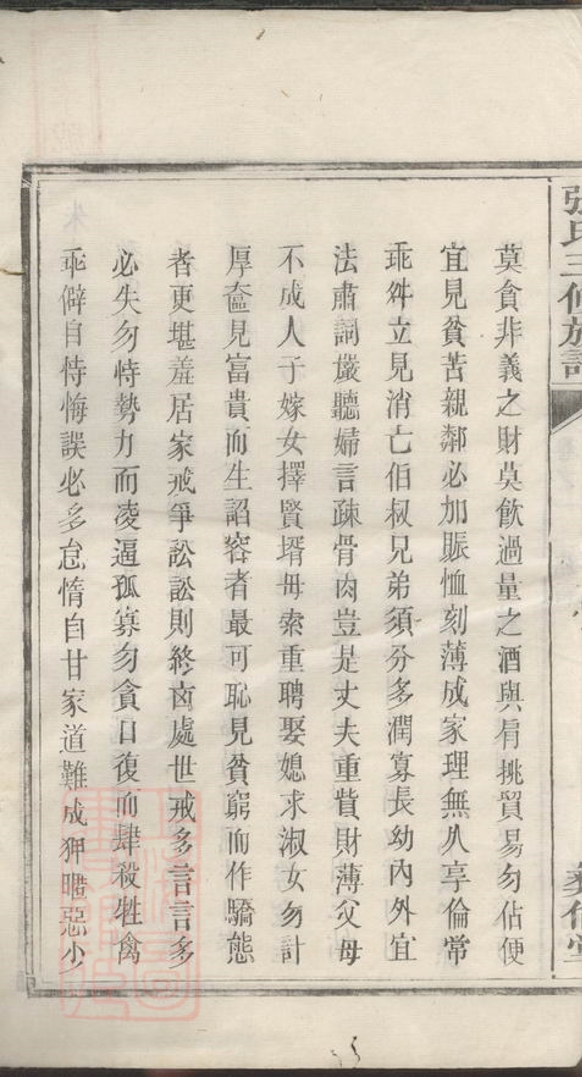 張氏三修族譜
莫貪非義之財莫飲過量之酒與肩挑貿易勿佔便
宜見貧苦親鄰必加賑恤刻薄成家理無久享倫常
乖舛立見消亡伯叔兄弟須分多潤寡長幼內外宜
法肅詞嚴聽婦言疎骨肉豈是丈夫重貲財薄父母
不成人子嫁女擇賢壻毋索重聘娶媳求淑女勿計
厚奩見富貴而生諂容者最可恥見貧窮而作驕態
者更堪羞居家戒爭訟訟則終凶處世戒多言言多
必失勿恃勢力而凌逼孤寡勿貪口復而肆殺牲禽
乖僻自恃悔誤必多怠惰自甘家道難成狎昵惡少